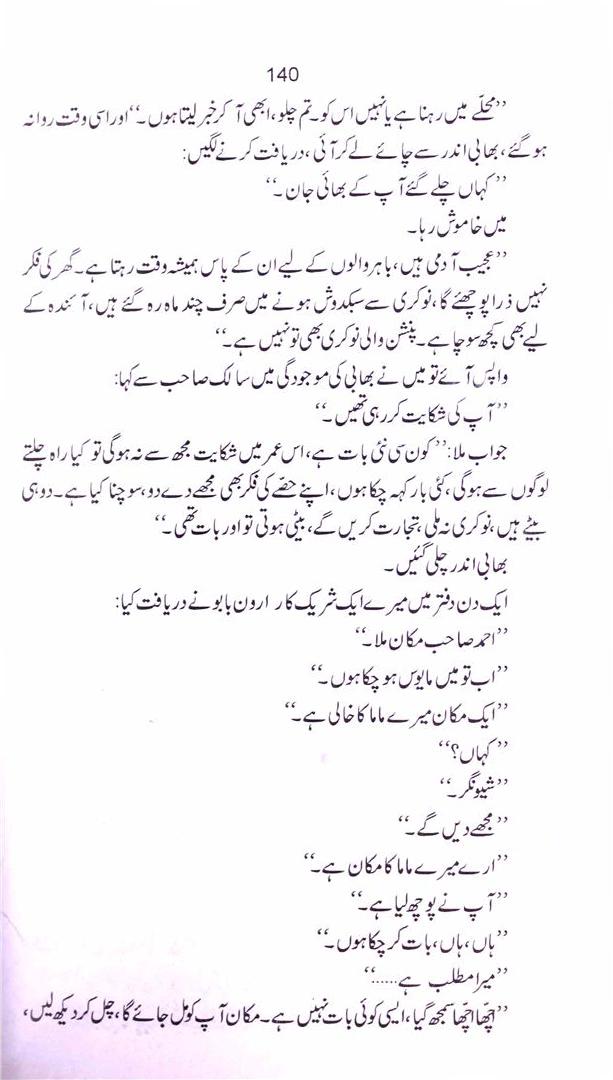 140
’’محلّے میں رہنا ہے یا نہیں اس کو۔ تم چلو، ابھی آ کر خبر لیتا ہوں۔‘‘ اور اسی وقت روانہ
ہو گئے، بھابی اندر سے چائے لے کر آئی، دریافت کرنے لگیں:
’’کہاں چلے گئے آپ کے بھائی جان۔‘‘
میں خاموش رہا۔
’’عجیب آدمی ہیں، باہر والوں کے لیے ان کے پاس ہمیشہ وقت رہتا ہے۔ گھر کی فکر
نہیں ذرا پوچھئے گا، نوکری سے سبکدوش ہونے میں صرف چند ماہ رہ گئے ہیں، آئندہ کے
لیے بھی کچھ سوچا ہے۔ پنشن والی نوکری بھی تو نہیں ہے۔‘‘
واپس آئے تو میں نے بھابی کی موجودگی میں سالک صاحب سے کہا:
’’آپ کی شکایت کر رہی تھیں۔‘‘
جواب ملا: ’’کون سی نئی بات ہے، اس عمر میں شکایت مجھ سے نہ ہوگی تو کیا راہ چلتے
لوگوں سے ہوگی، کئی بار کہہ چکا ہوں، اپنے حصّے کی فکر بھی مجھے دے دو، سوچنا کیا ہے۔ دو ہی
بیٹے ہیں، نوکری نہ ملی، تجارت کریں گے، بیٹی ہوتی تو اور بات تھی۔‘‘
بھابی اندر چلی گئیں۔
ایک دن دفتر میں میرے ایک شریک کار ارون بابو نے دریافت کیا:
’’احمد صاحب مکان ملا۔‘‘
’’اب تو میں مایوس ہو چکا ہوں۔‘‘
’’ایک مکان میرے ماما کا خالی ہے۔‘‘
’’کہاں؟‘‘
’’شیونگر۔‘‘
’’مجھے دیں گے۔‘‘
’’ارے میرے ماما کا مکان ہے۔‘‘
’’آپ نے پوچھ لیا ہے۔‘‘
’’ہاں، ہاں، بات کر چکا ہوں۔‘‘
’’میرا مطلب ہے......‘‘
’’اچّھا اچّھا سمجھ گیا، ایسی کوئی بات نہیں ہے۔ مکان آپ کو مل جائے گا، چل کر دیکھ لیں،